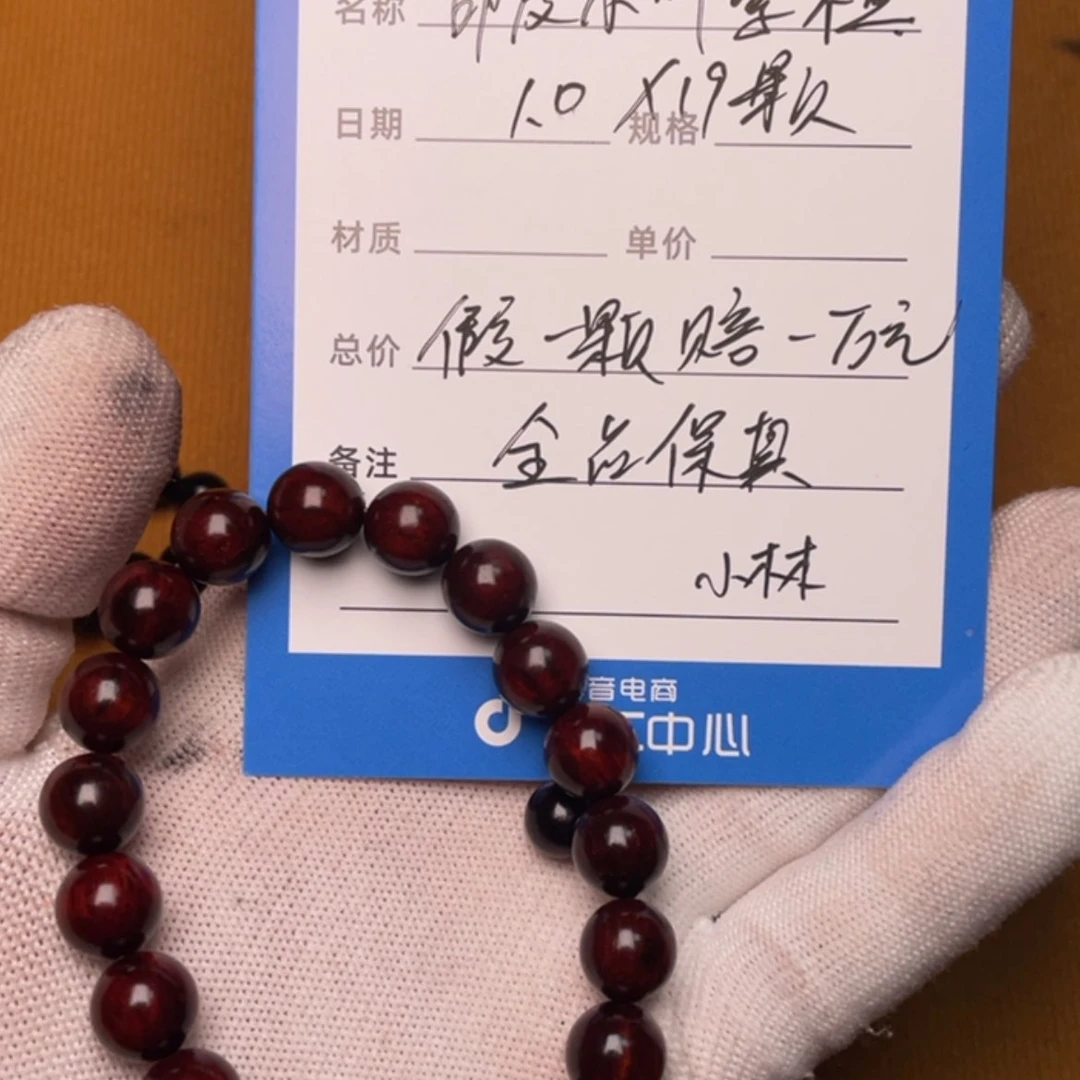 名称 印度小叶紫檀.
日期 1.0 X19颗 规格
材质 单价
总价 假一颗赔一万元
备注 全品保真
小林
音电商
中心